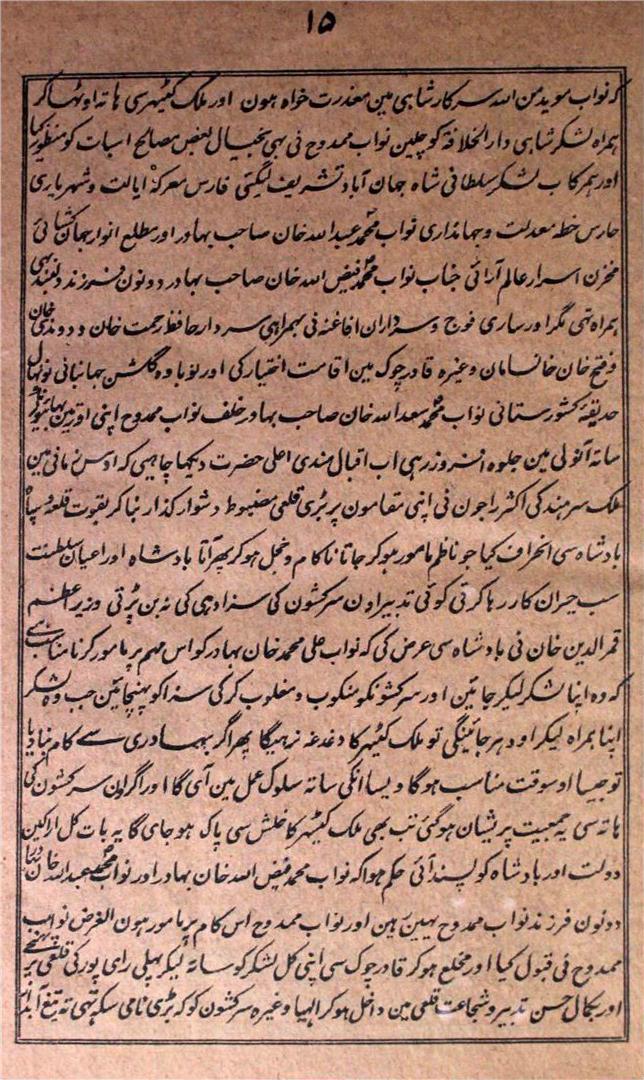 ۱۵
کہ نواب موید من اللہ سرکار شاہی مین معذرت خواہ ہون اور ملک کٹیہر سی ہاتہ اوٹہا کر
ہمراہ لشکر شاہی دار الخلافۃ کو چلین نواب ممدوح نی بہی بخیال بعض مصالح اسبات کو منظور کیا
اور ہمرکاب لشکر سلطانی شاہ جہان آباد تشریف لیگئی فارس معرکہ ایالت و شہریاری
حارس خطہ معدلت و جہانداری نواب محمد عبد اللہ خان صاحب بہادر اور مطلع انوار جہان کشائی
مخزن اسرار عالم آرائی جناب نواب محمد فیض اللہ خان صاحب بہادر دونون فرزند دلبند بہی
ہمراہ تہی مگر اور ساری فوج و سرداران افاغنہ نی بہمراہی سردار حافظ رحمت خان و دوندی خان
و فتح خان خانسامان وغیرہ قادر چوک مین اقامت اختیار کی اور نوباوہ گلشن جہانبانی نونہال
حدیقہ کشورستانی نواب محمد سعد اللہ خان صاحب بہادر خلف نواب ممدوح اپنی اور تین بہائیون کی
ساتہ آنولی مین جلوہ افروز رہی اب اقبال مندی اعلی حضرت دیکہا چاہیی کہ اوس زمانی مین
ملک سرہند کی اکثر راجون نی اپنی مقامون پر بڑی قلعی مضبوط دشوار گذار بنا کر بقوت قلعہ و سپاہ
بادشاہ سی انحراف کیا جو ناظم مامور ہو کر جاتا ناکام و خجل ہو کر پہر آتا بادشاہ اور اعیان سلطنت
سب حیران کار رہا کرتی کوئی تدبیر اون سرکشون کی سزا دہی کی نہ بن پڑتی وزیر اعظم
قمر الدین خان نی بادشاہ سی عرض کی کہ نواب علی محمد خان بہادر کو اس مہم پر مامور کرنا مناسب ہے
کہ وہ اپنا لشکر لیکر جائین اور سرکشونکو منکوب و مغلوب کر کی سزا کو پہنچائین جب وہ لشکر
اپنا ہمراہ لیکر اودہر جائینگی تو ملک کٹیہر کا دغدغہ نرہیگا پہر اگر بہادری سے کام بنا دیا
تو جیسا اوسوقت مناسب ہو گا ویسا انکی ساتہ سلوک عمل مین آی گا اور اگر اون سرکشون کی
ہاتہ سی یہ جمعیت پریشان ہو گئی تب بھی ملک کٹیہر کا خلش سی پاک ہو جای گا یہ بات کل اراکین
دولت اور بادشاہ کو پسند آئی حکم ہوا کہ نواب محمد فیض اللہ خان بہادر اور نواب محمد عبد اللہ خان بہادر
دونون فرزند نواب ممدوح یہین رہین اور نواب ممدوح اس کام پر مامور ہون الغرض نواب
ممدوح نی قبول کیا اور مخلع ہو کر قادر چوک سی اپنی کل لشکر کو ساتہ لیکر پہلی رای پور کی قلعی پر پہنچے
اور بکمال حسن تدبیر و شجاعت قلعی مین داخل ہو کر الہیا وغیرہ سرکشون کو کہ بڑی نامی سکہ تہی تہ تیغ آبدار